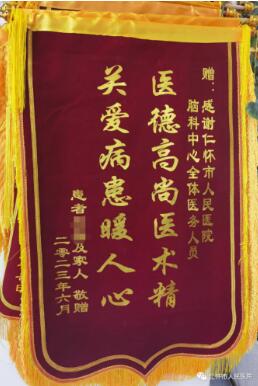 赠：感谢仁怀市人民医院
脑科中心全体医务人员
医德高尚医术精
关爱病患暖人心
患者 及家人 敬赠
二零二三年六月
仁怀市人民医院